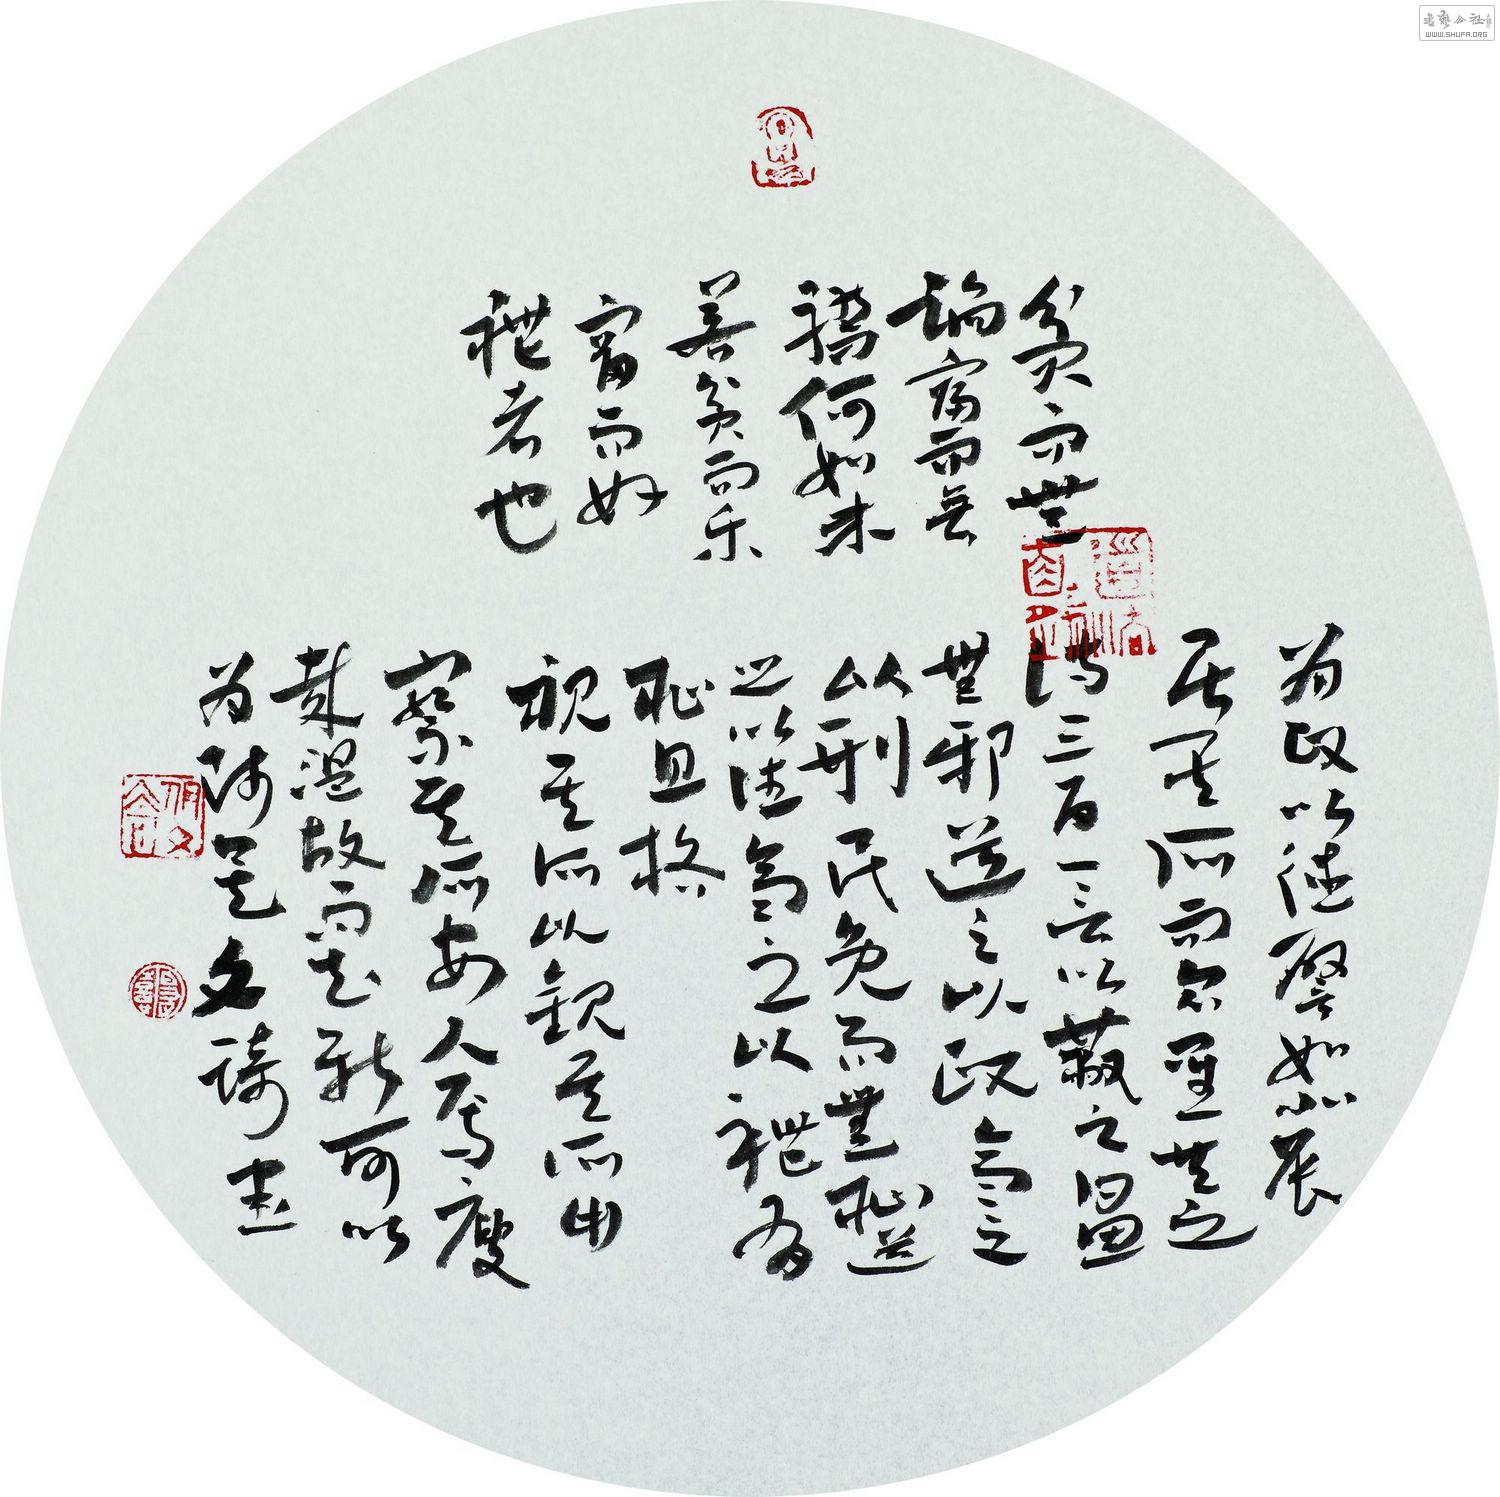 貧而無
諂富而無
驕何如未
若貧而乐
富而好
禮者也
為政以德譬如北辰
居其所而眾星共之
詩三百一言以蔽之曰思
無邪道之以政齊之
以刑民免而無恥道
之以德齊之以禮有
恥且格
視其所以觀其所由
察其所安人焉廋
哉溫故而知新可以
為師矣 文琦書
書藝公社
WWW.SHUFA.ORG